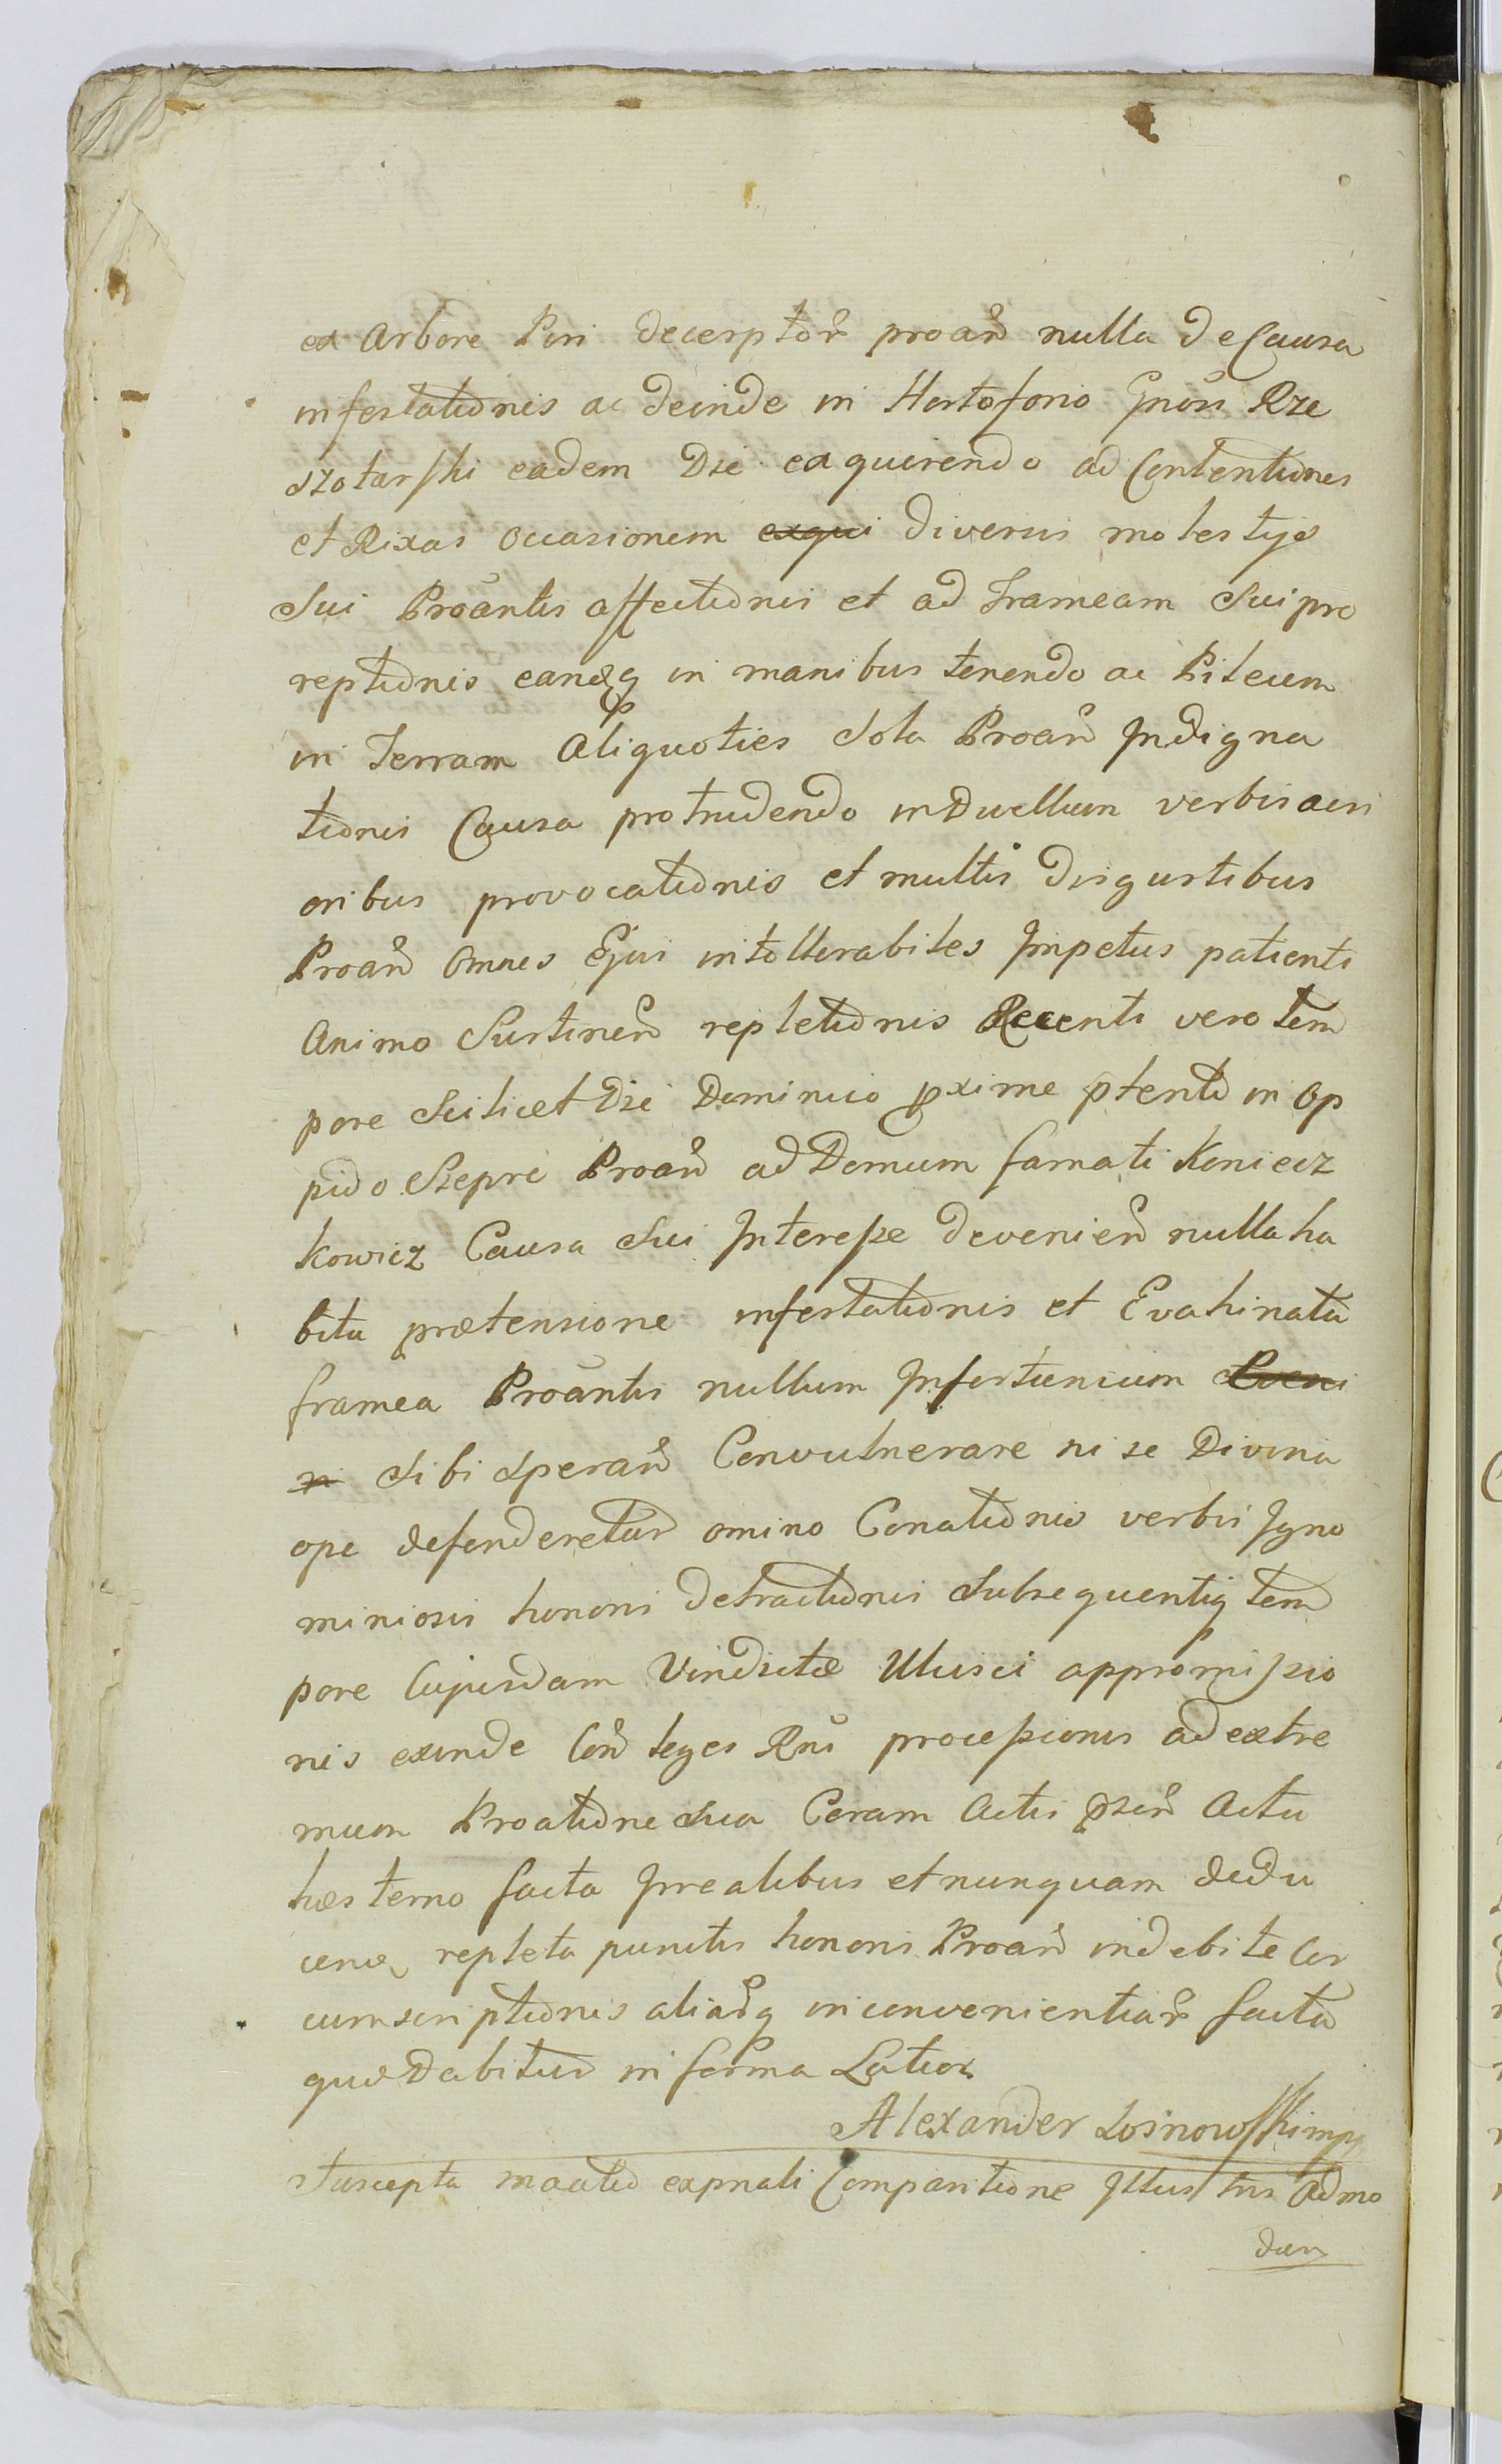 ex Arbore Piri decerptor proan nulla de Causa
infestationis ac deinde in Hortoforio Gnosi Rze
szotarski eadem Die exquirendo ad Contentiones
et Rixas occasionem exqui diversis molestijs
Sui Proantis affectionis et ad Frameam Sui pro
reptionis eandq in manibus tenendo ac Pileum
in Terram Aliquoties Sola Proan Indigna
tionis Causa protrudendo in Duellum verbis acri
oribus provocationis et multis disgustibus
Proan Omnes Ejus intollerabiles Impetus patienti
Animo Sustinen repletionis Recenti vero tem
pore Scilicet Die Dominico pxime ptento in Op
pido Siepre Proan ad Domum famati Koniecz
kowicz Causa Sui Interesse devenien nulla ha
bita prætensione infestationis et Evahinata
framea Proantis nullum Infortunium Eveni
ri Sibi Speran Convulnerare ni se Divina
ope defenderetur omino Conationis verbis Igno
miniosis honoris detractionis Subsequentiq tem
pore Cujusdam Vindictæ Ulcisci appromissio
nis exinde Con leges Rni processionis ad extre
mum Proatione Sua Coram Actis psen Actu
hæsterno facta Irrealibus et nunquam dedu
cend repleta punctis honoris Proan indebite Cir
cumscriptionis aliarq inconvenientiar facta
quæ Dabitur in forma Latior
Alexander Łosinowski mp
Suscepta mactio expnati Comparitione Illustris Admo
dum